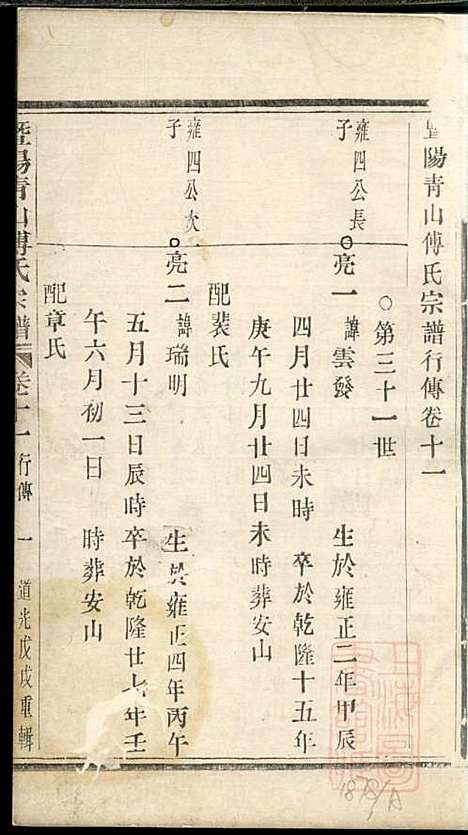 暨陽青山傅氏宗譜行傳卷十一
○第三十一世
雍四公長
子
亮一諱雲發 生於雍正二年甲辰
四月廿四日未時 卒於乾隆十五年
庚午九月廿四日未時葬安山
配裴氏
雍四公次
子
亮二諱瑞明 生於雍正四年丙午
五月十三日辰時卒於乾隆廿七年壬
午六月初一日 時葬安山
配章氏
暨陽青山傅氏宗譜 卷十一 行傳 一 道光戊戌重輯